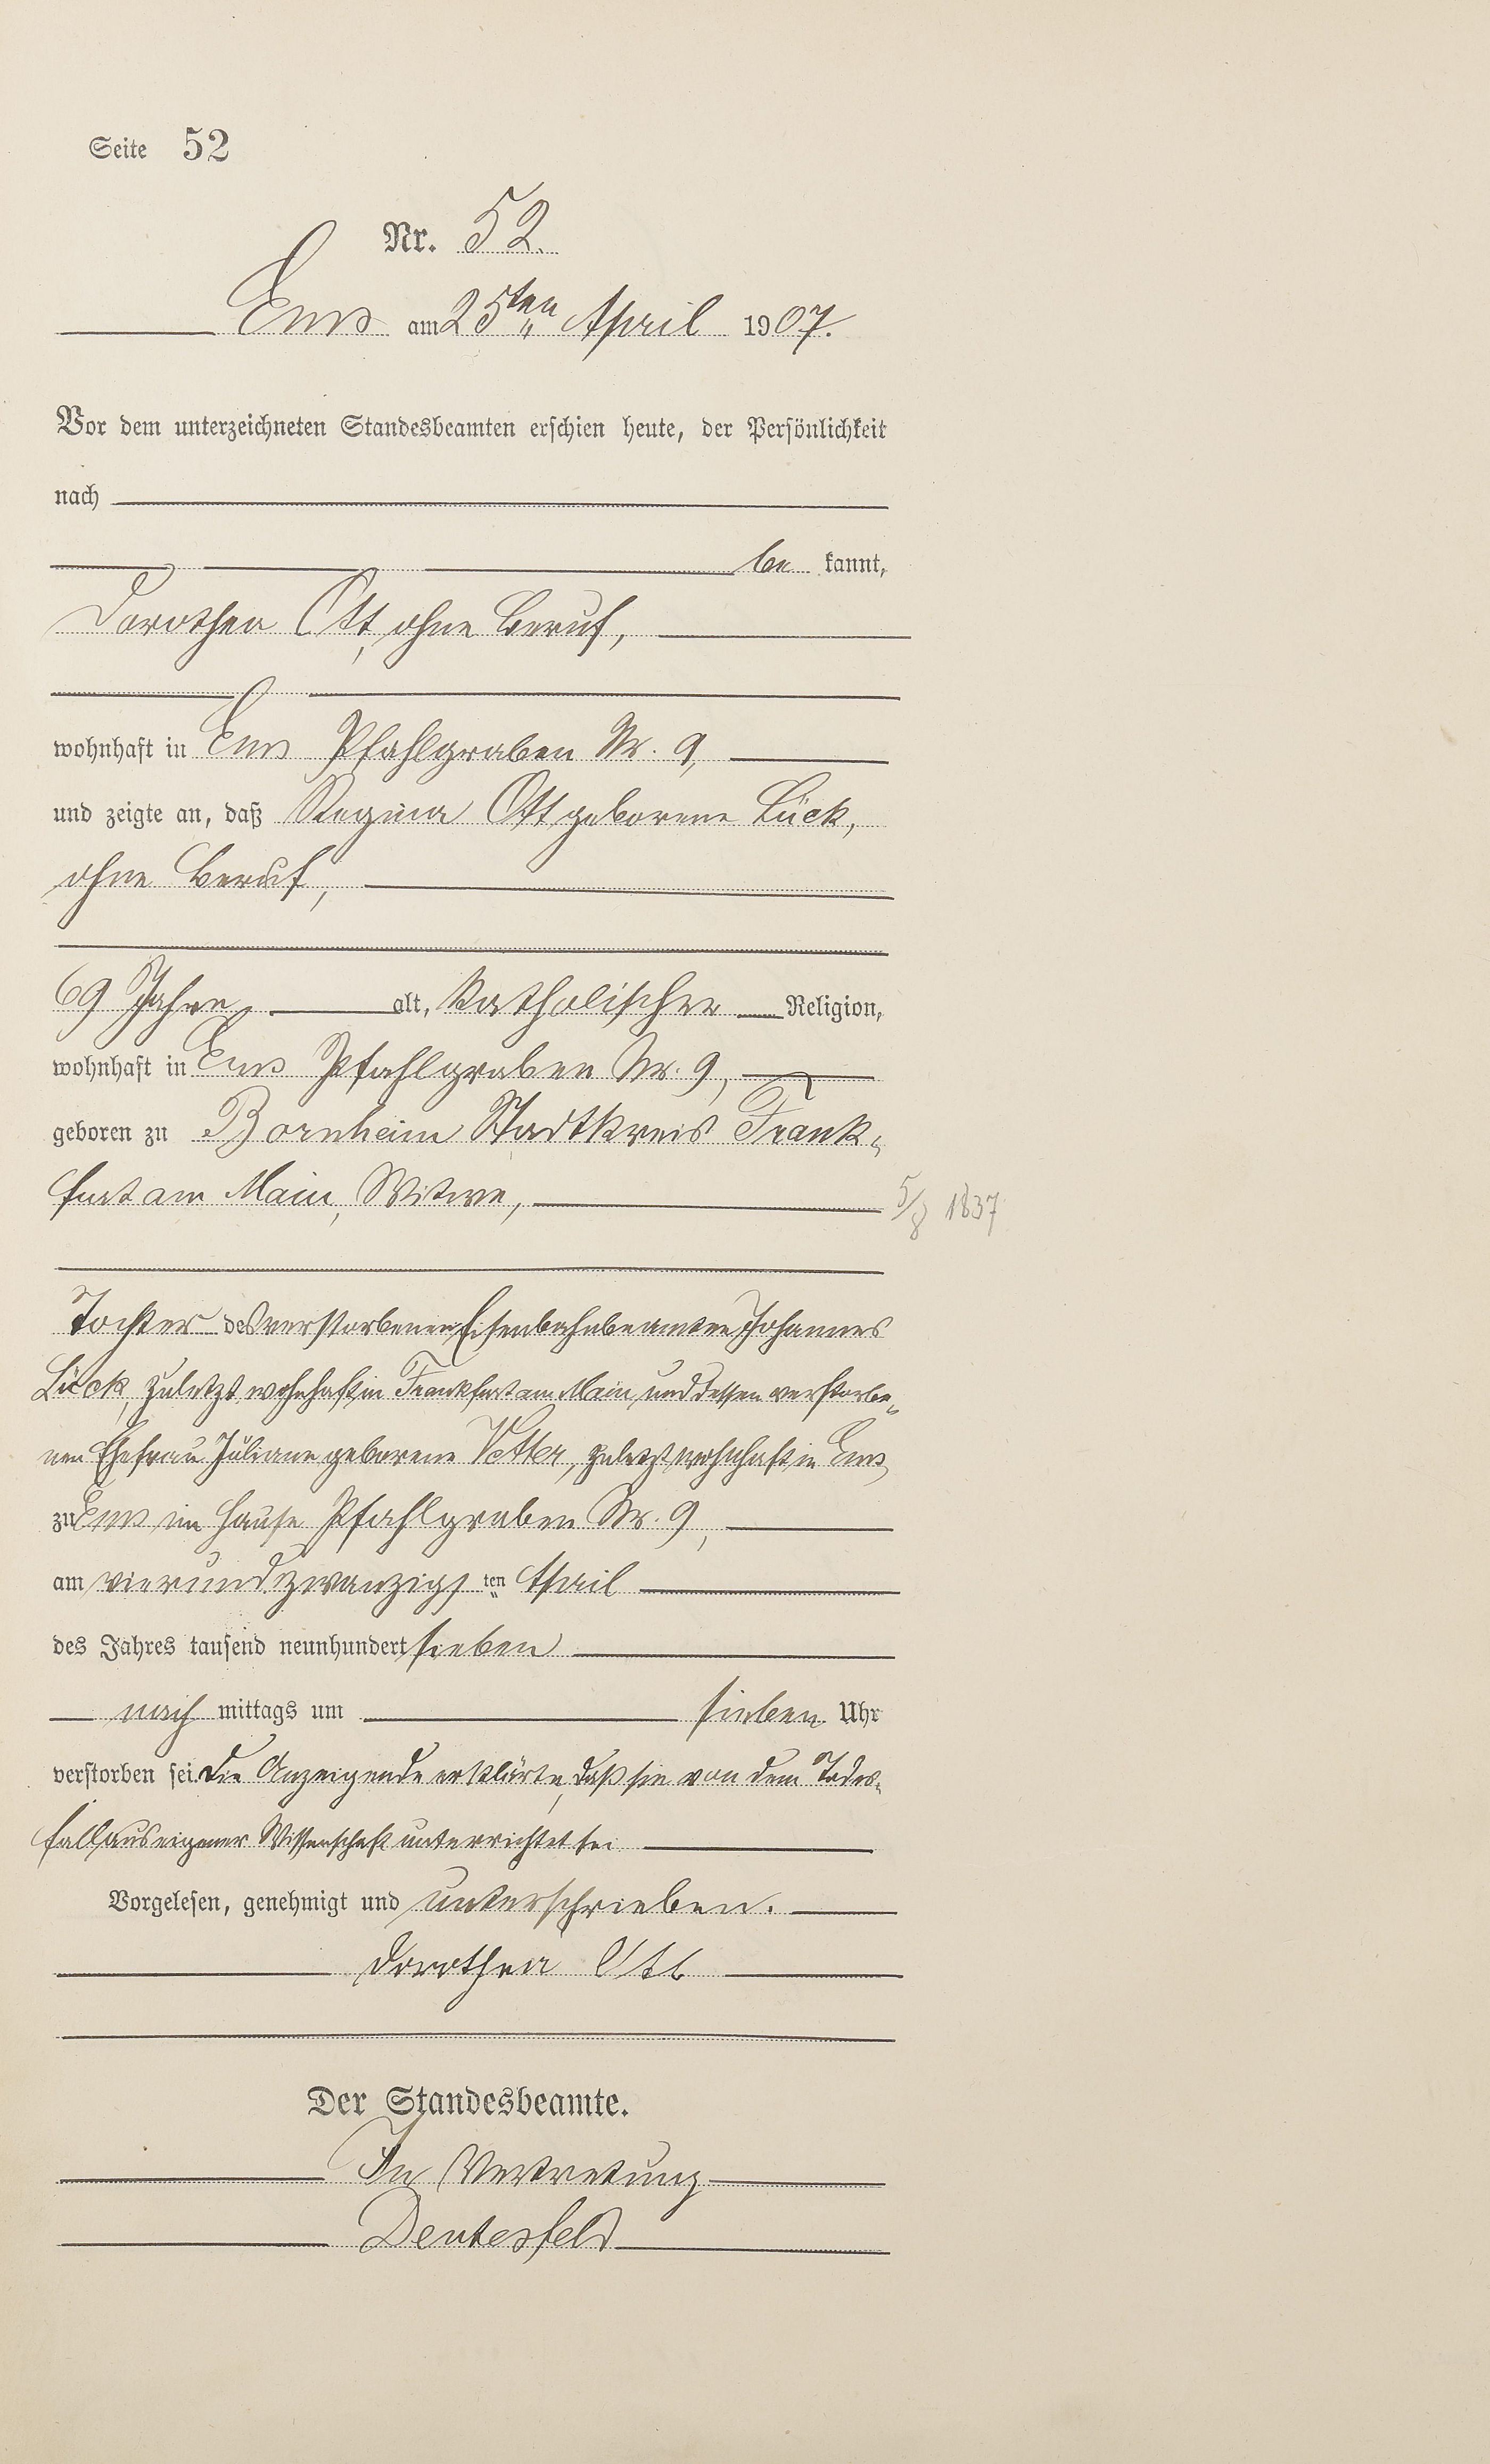 Seite 52
Nr. 52.
Ems am 25ten April 1907.
Vor dem unterzeichneten Standesbeamten erschien heute, der Persönlichkeit
nach
be kannt,
Dorothea Ott, ohne Beruf,
wohnhaft in Ems Pfahlgraben Nr. 9,
und zeigte an, daß Regina Ott geborene Lück,
ohne Beruf,
69 Jahre alt, katholischer Religion,
wohnhaft in Ems Pfahlgraben Nr. 9,
geboren zu Bornheim Stadtkreis Frank-
furt am Main, Witwe,
5/8 1837
Tochter des verstorbenen Eisenbahnbeamten Johannes
Lück, zuletzt wohnhaft in Frankfurt am Main, und dessen verstorbe-
nen Ehefrau Juliane geborene Vetter, zuletzt wohnhaft in Ems,
zu Ems im Hause Pfahlgraben Nr. 9,
am vierundzwanzigsten April
des Jahres tausend neunhundert sieben
nach mittags um sieben Uhr
verstorben sei. Die Anzeigende erklärte, daß sie von dem Todes-
fall aus eigener Wissenschaft unterrichtet sei
Vorgelesen, genehmigt und unterschrieben.
Dorothea Ott
Der Standesbeamte.
In Vertretung
Deutesfeld